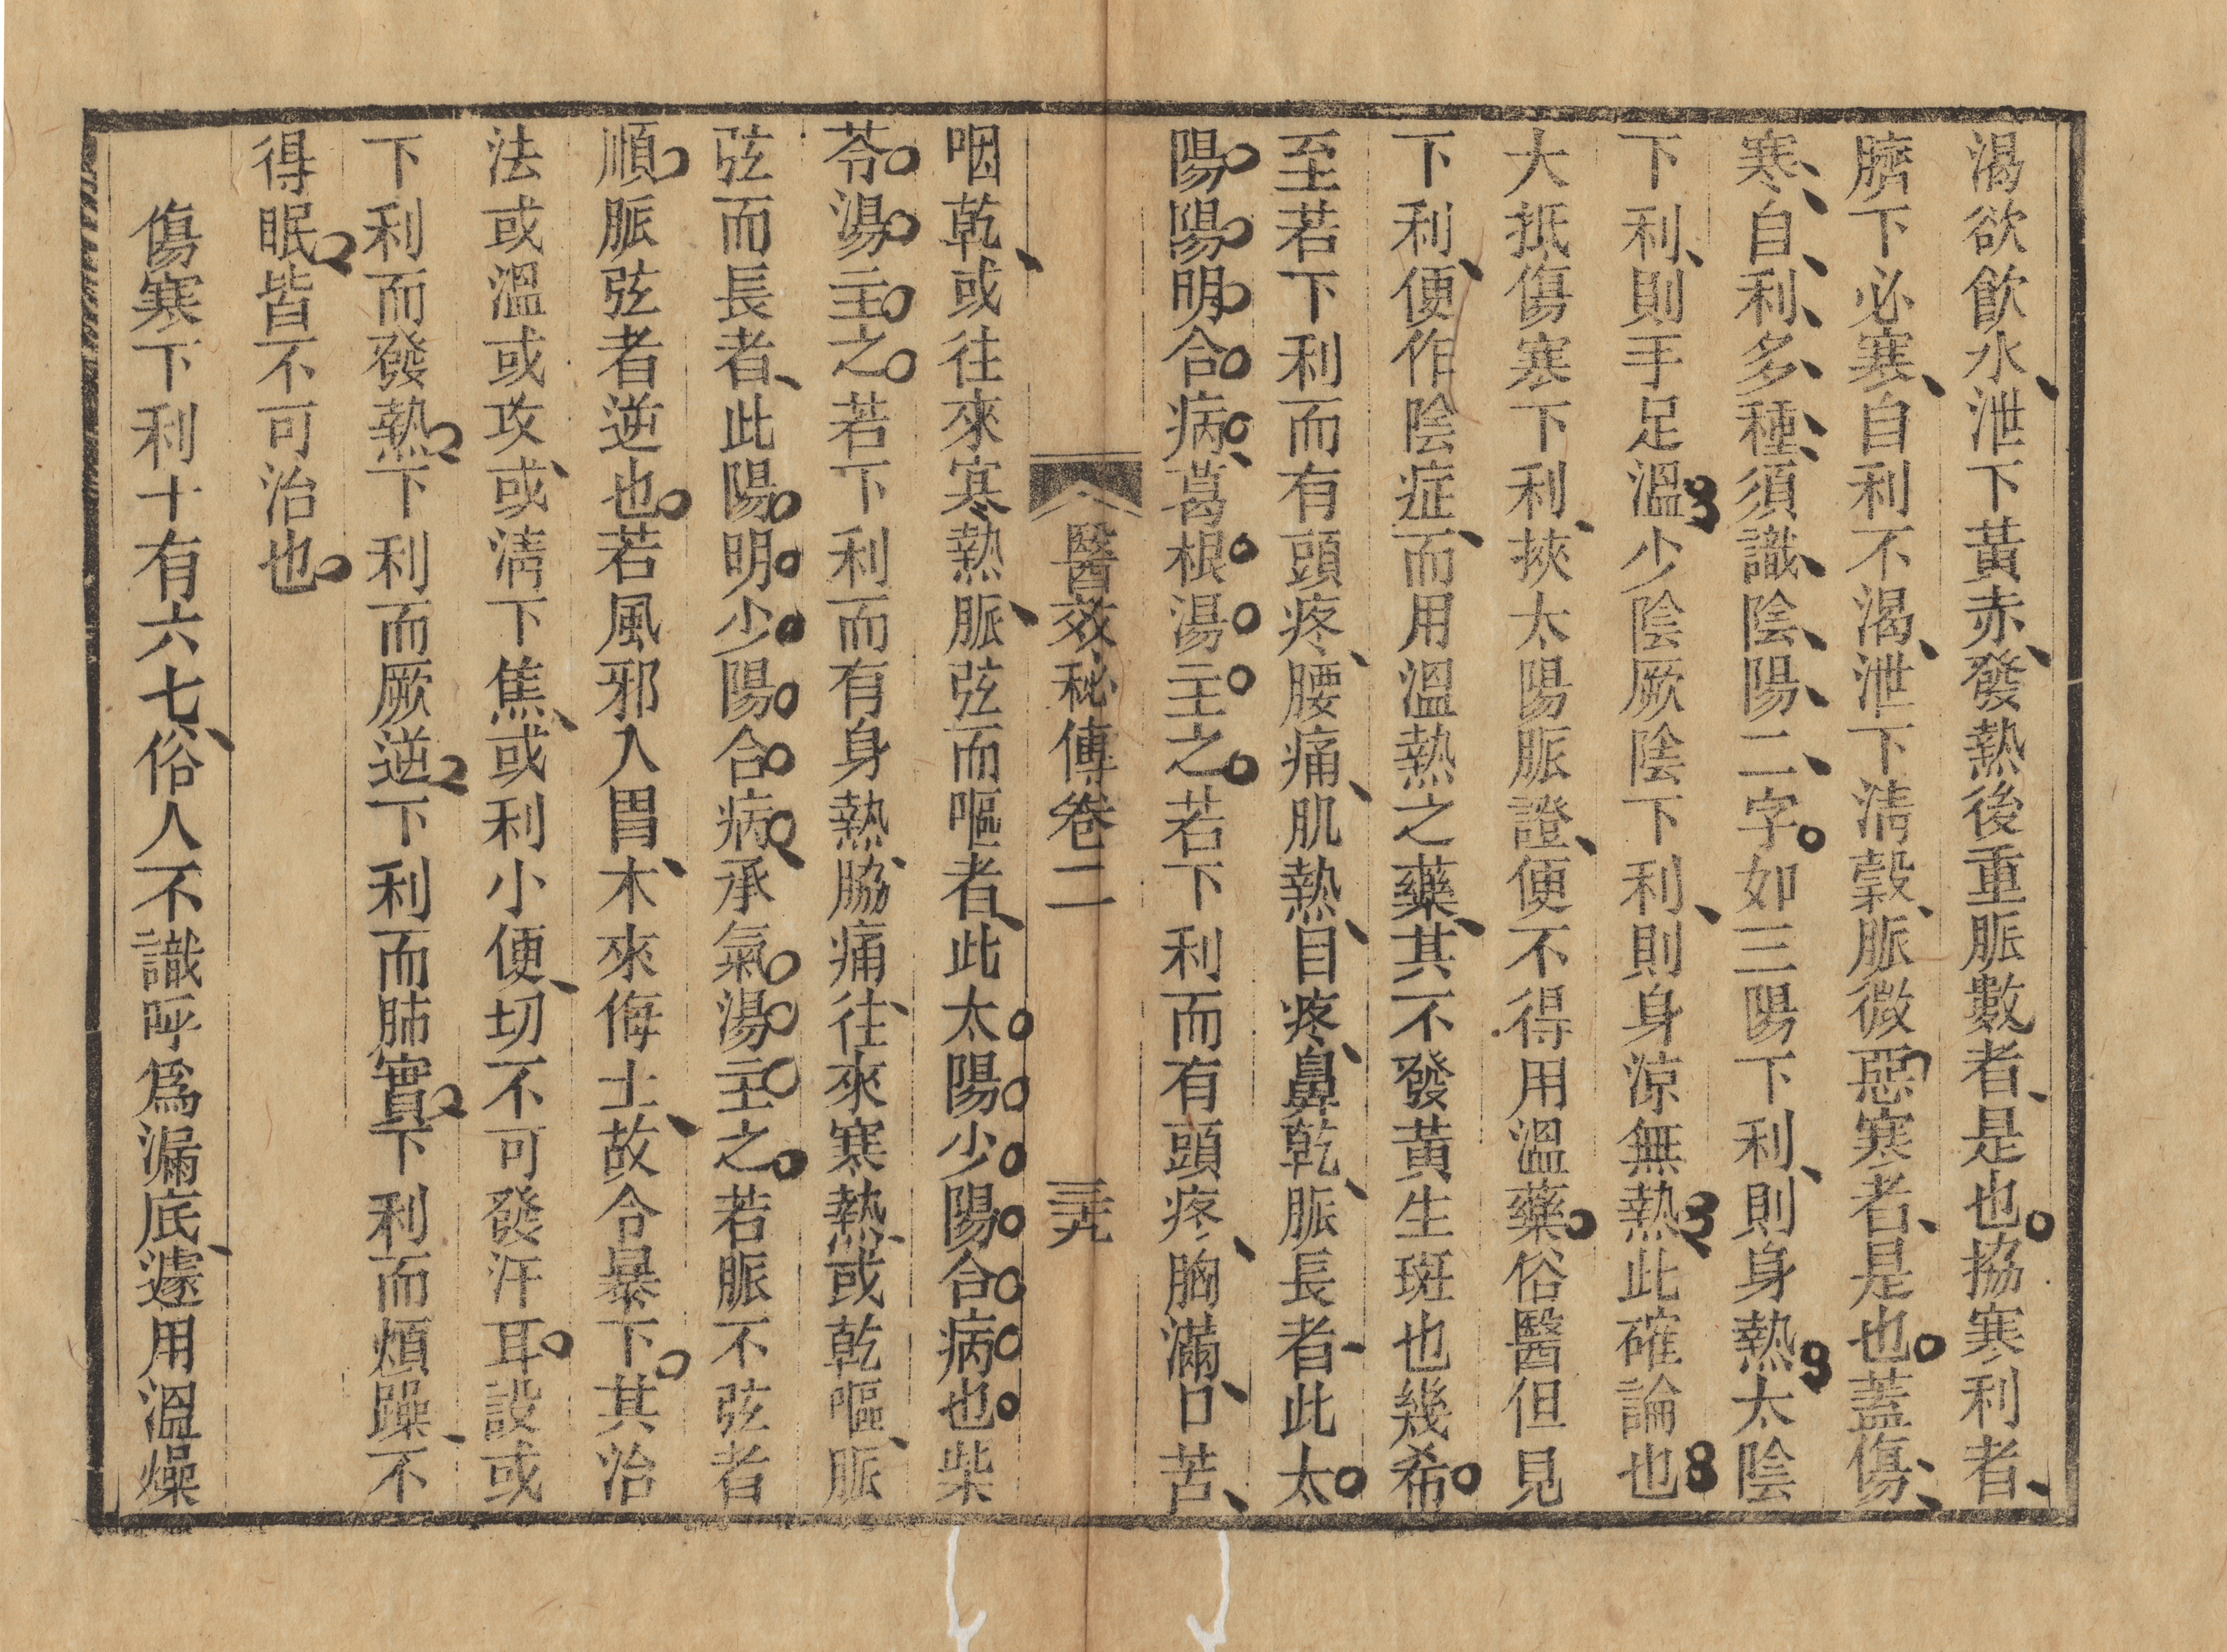 渴欲飲水泄下黃赤發熱後重脈數者是也協寒利者
臍下必寒自利不渴泄下清穀脈微惡寒者是也蓋傷
寒自利多種須識陰陽二字如三陽下利則身熱太陰
下利則手足溫少陰厥陰下利則身涼無熱此確論也
大抵傷寒下利挾太陽脈證便不得用溫藥俗醫但見
下利便作陰症而用溫熱之藥其不發黃生斑也幾希
至若下利而有頭疼腰痛肌熱目疼鼻乾脈長者此太
陽陽明合病葛根湯主之若下利而有頭疼胸滿口苦
醫效秘傳卷二
三十九
咽乾或往來寒熱脈弦而嘔者此太陽少陽合病也柴
苓湯主之若下利而有身熱脇痛往來寒熱或乾嘔脈
弦而長者此陽明少陽合病承氣湯主之若脈不弦者
順脈弦者逆也若風邪入胃木來侮土故令暴下其治
法或溫或攻或清下焦或利小便切不可發汗耳設或
下利而發熱下利而厥逆下利而肺實下利而煩躁不
得眠皆不可治也
傷寒下利十有六七俗人不識呼爲漏底遽用溫燥